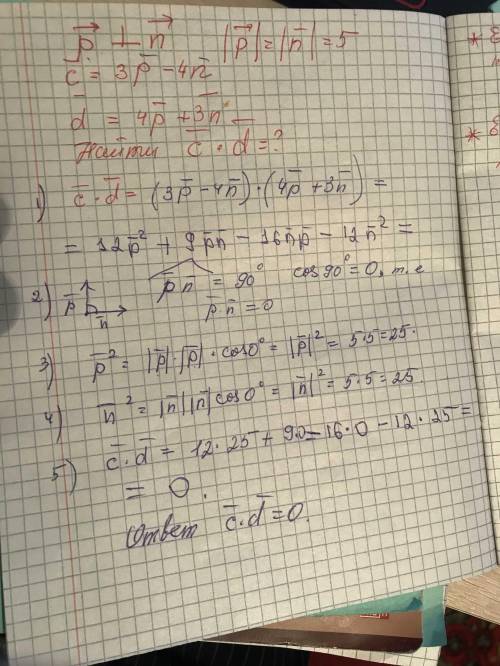 p⃗ ⊥ n⃗ |p⃗| = |n⃗| = 5
c̄ = 3p̄ − 4n̄
d̄ = 4p̄ + 3n̄
Найти c̄ · d̄ = ?
1) c̄ · d̄ = (3p̄ − 4n̄) · (4p̄ + 3n̄) =
= 12p̄² + 9p̄n̄ − 16n̄p̄ − 12n̄² =
2) p̄ n̄ p̄ n̄ = 90° cos 90° = 0, т.е
p̄ · n̄ = 0
3) p̄² = |p̄| · |p̄| · cos0° = |p̄|² = 5·5 = 25.
4) n̄² = |n̄| |n̄| cos0° = |n̄|² = 5·5 = 25.
5) c̄ · d̄ = 12 · 25 + 9·0 − 16·0 − 12 · 25 =
= 0.
Ответ c̄ · d̄ = 0.